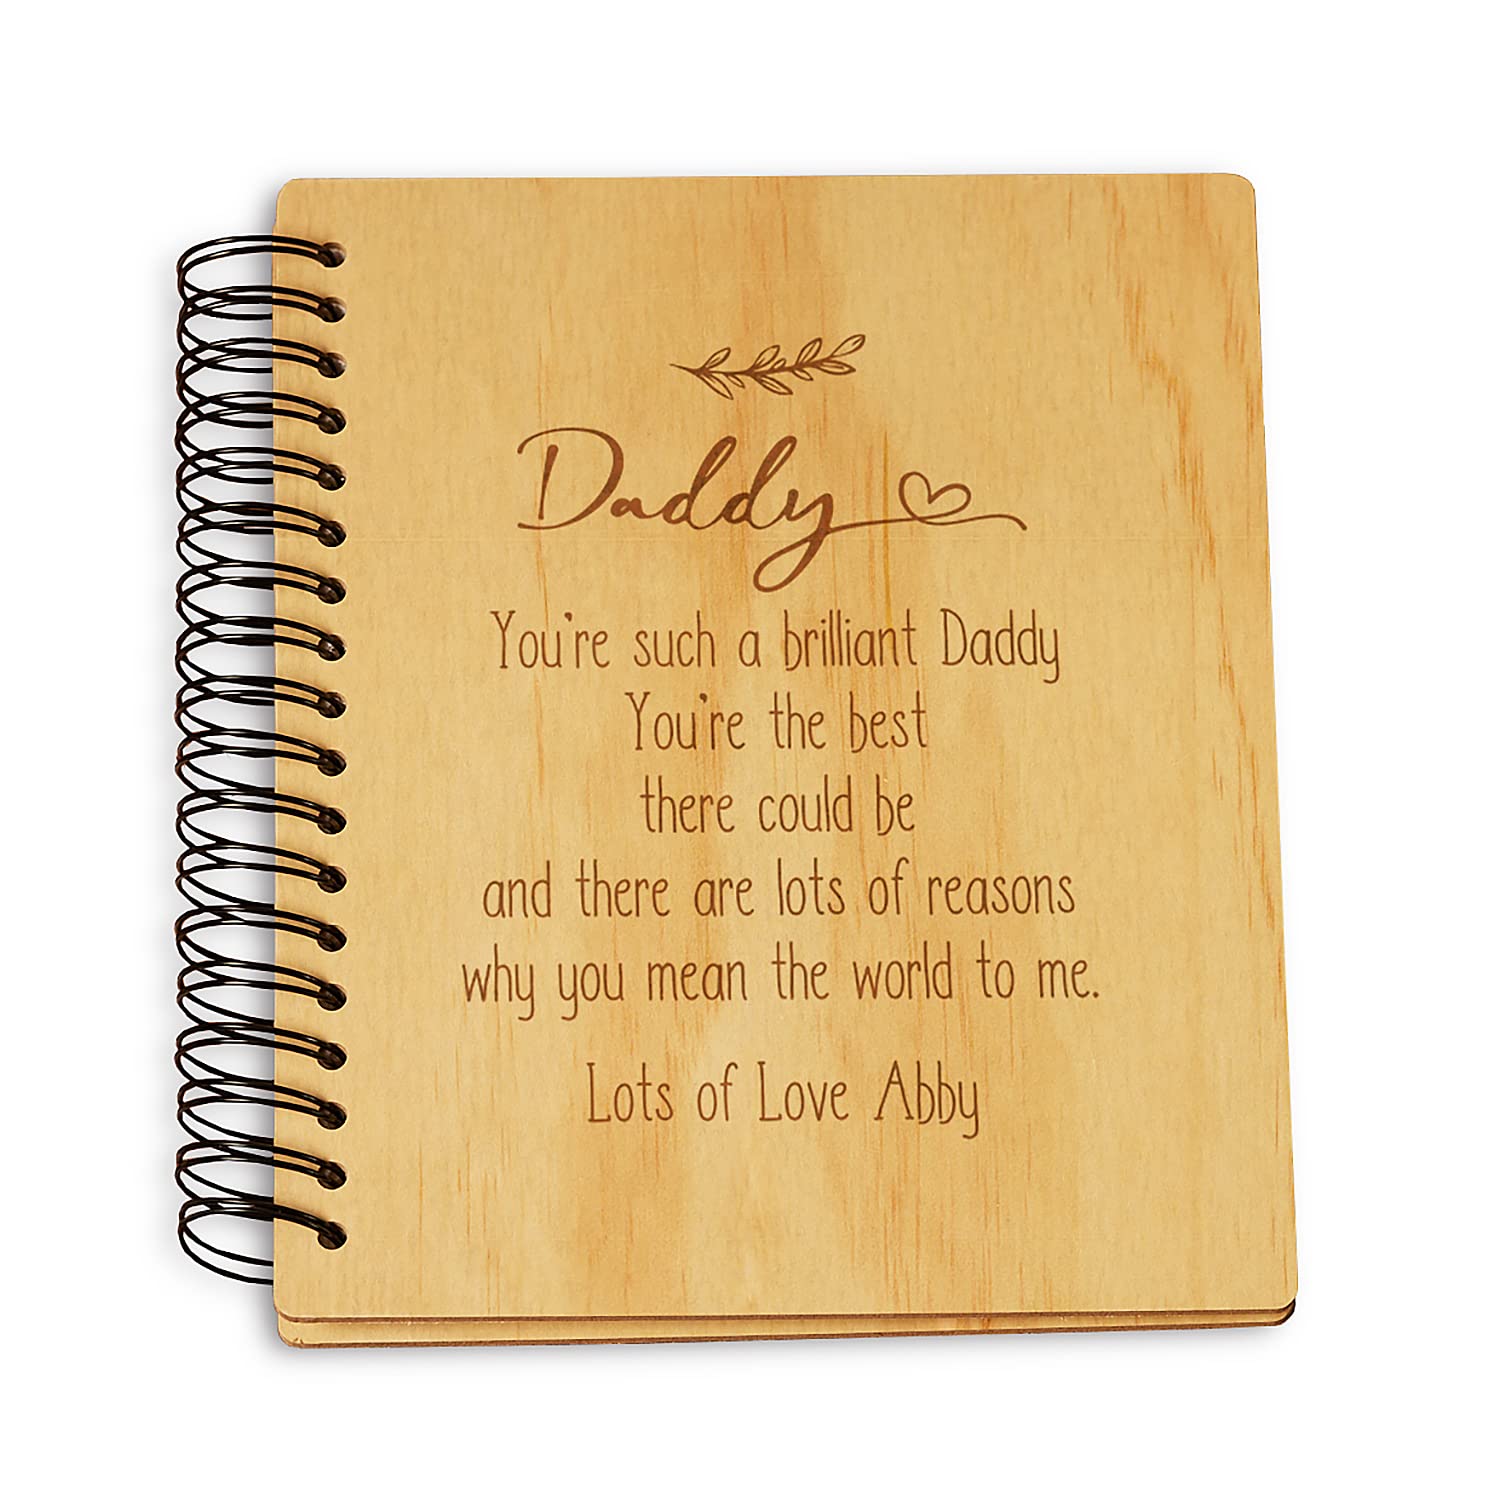 Daddy
You're such a brilliant Daddy
You're the best
there could be
and there are lots of reasons
why you mean the world to me.
Lots of Love Abby